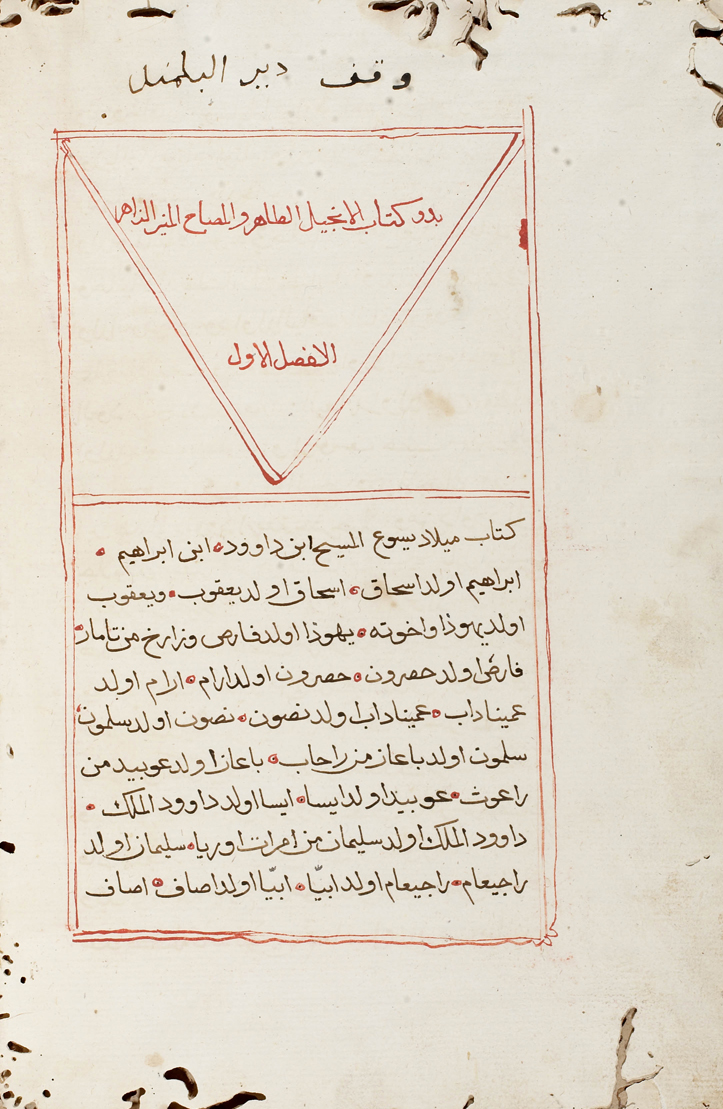 وقف دير البلمند
بدو كتاب الانجيل الطاهر والمصباح المنير الزاهر
الافصل الاول
كتاب ميلاد يسوع المسيح ابن داوود • ابن ابراهيم •
ابراهيم اولد اسحاق • اسحاق اولد يعقوب • ويعقوب
اولد يهوذا واخوته • يهوذا اولد فارص وزارخ من تامار •
فارص اولد حصرون • حصرون اولد ارام • ارام اولد
عميناداب • عميناداب اولد نصون • نصون اولد سلمون •
سلمون اولد باعاز من راحاب • باعاز اولد عوبيد من
راعوث • عوبيد اولد ايسا • ايسا اولد داوود الملك •
داوود الملك اولد سليمان من امرات اوريا • سليمان اولد
راجيعام • راجيعام اولد ابيّا • ابيّا اولد اصاف • اصاف